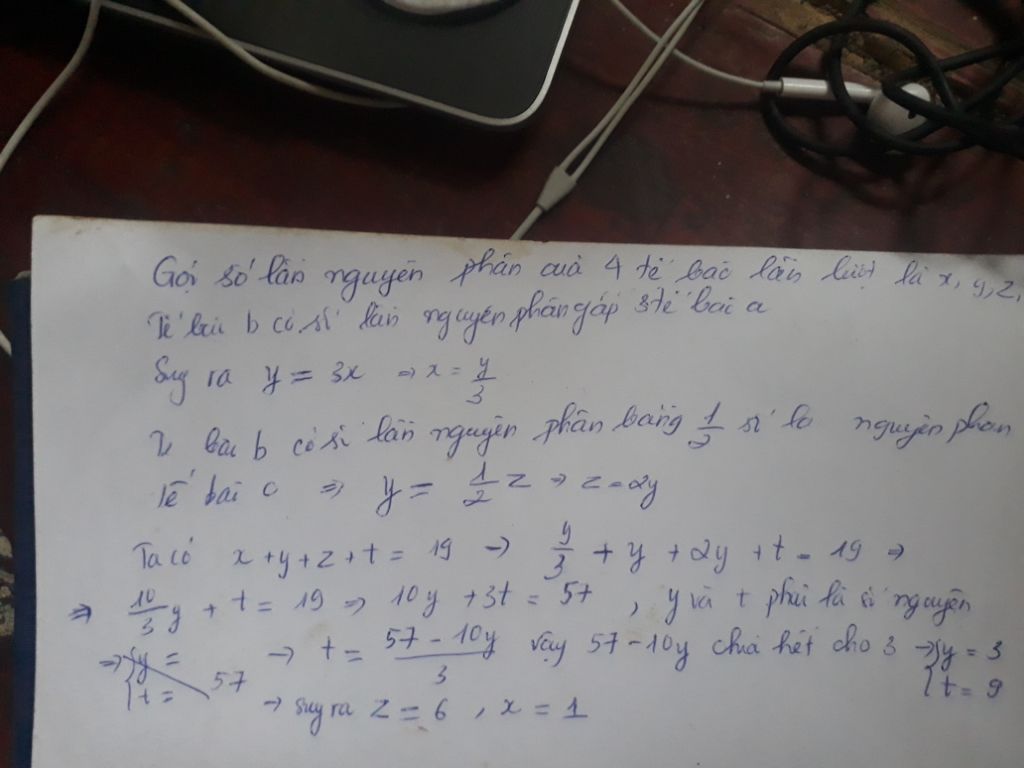 Gọi số lần nguyên phân của 4 tế bào lần lượt là x, y, z,
Tế bào b có số lần nguyên phân gấp 3 tế bài a
Suy ra y = 3x ⇒ x = y/3
bào b có số lần nguyên phân bằng 1/2 số nguyên phân
Tế bài c ⇒ y = 1/2 z ⇒ z = 2y
Ta có x + y + z + t = 19 → y/3 + y + 2y + t = 19 ⇒
⇒ 10/3 y + t = 19 ⇒ 10y + 3t = 57 , y và t phải là số nguyên
⇒ { y = t = 57 → t = (57 - 10y)/3 vậy 57 - 10y chia hết cho 3 → { y = 3 t = 9
→ Suy ra z = 6 , x = 1